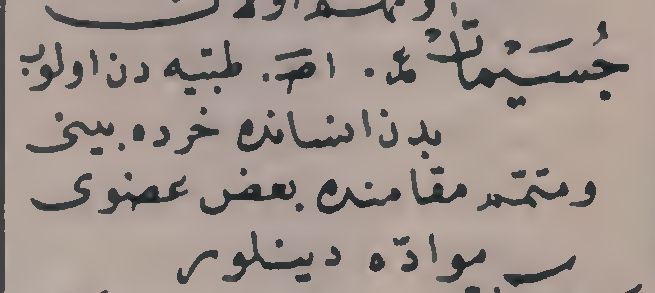 جُسَيْمَاتْ ع. اص. طبيه دن اولوب
بدن انسانده خرده بينى
ومتمم مقامنده بعض عضوى
موادّه دينلور